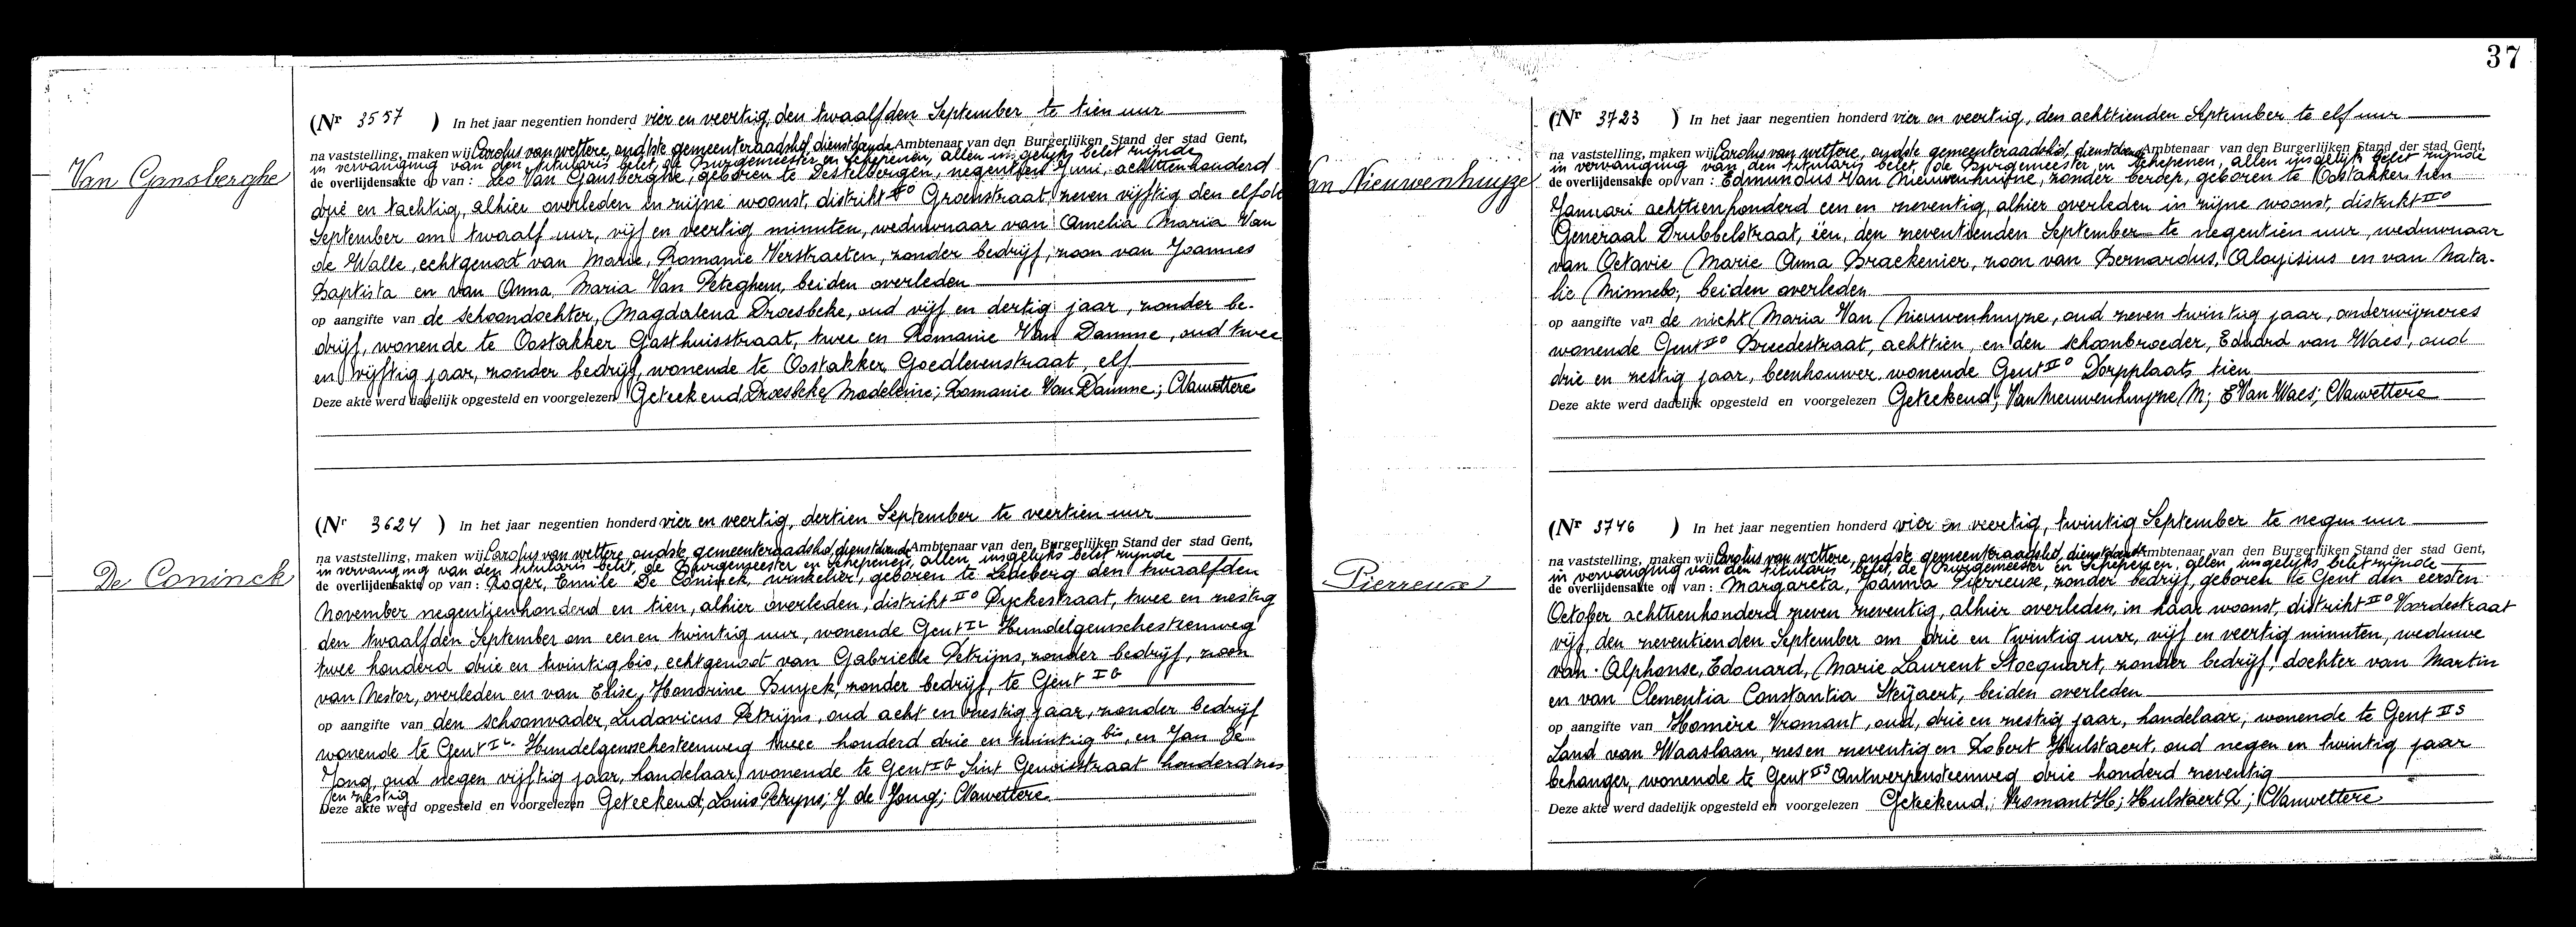 37
Van Gansberghe
(Nr 3557 ) In het jaar negentien honderd vier en veertig, den twaalfden September te tien uur
na vaststelling, maken wij Carolus van wettere, oudste gemeenteraadslid, dienstdoende Ambtenaar van den Burgerlijken Stand der stad Gent,
in vervanging van den titularis belet, de Burgemeester en Schepenen, allen insgelijks belet zijnde
de overlijdensakte op van : Leo Van Gansberghe, geboren te Destelbergen, negentien Juni, achttienhonderd
drie en tachtig, alhier overleden in zijne woonst, distrikt IIº Groenstraat, zeven vijftig den elfde
September om twaalf uur, vijf en veertig minuten, weduwnaar van Amelia Maria Van
de Walle, echtgenoot van Marie, Romanie Verstraeten, zonder bedrijf, zoon van Joannes
Baptista en van Anna, Maria Van Peteghem, beiden overleden
op aangifte van de schoondochter, Magdalena Droesbeke, oud vijf en dertig jaar, zonder be-
drijf, wonende te Oostakker Gasthuisstraat, twee en Romanie Van Damme, oud twee
en vijftig jaar, zonder bedrijf, wonende te Oostakker Goedlevenstraat, elf
Deze akte werd dadelijk opgesteld en voorgelezen Geteekend, Droesbeke Madeleine; Romanie Van Damme; CVanwettere
De Coninck
(Nr 3624 ) In het jaar negentien honderd vier en veertig, dertien September te veertien uur
na vaststelling, maken wij Carolus van wettere, oudste gemeenteraadslid, dienstdoende Ambtenaar van den Burgerlijken Stand der stad Gent,
in vervanging van den titularis belet, de Burgemeester en Schepenen, allen insgelijks belet zijnde
de overlijdensakte op van : Roger, Emile De Coninck, winkelier, geboren te Ledeberg den twaalfden
November negentienhonderd en tien, alhier overleden, distrikt IIº Dyckestraat, twee en zestig
den twaalfden September om een en twintig uur, wonende Gent IL Hundelgemschesteenweg
twee honderd drie en twintig bis, echtgenoot van Gabrielle Petrijns, zonder bedrijf, zoon
van Nestor, overleden en van Elise, Honorine Buyck, zonder bedrijf, te Gent IG
op aangifte van den schoonvader, Ludovicus Petrijns, oud acht en zestig jaar, zonder bedrijf
wonende te Gent IL Hundelgemschesteenweg twee honderd drie en twintig bis, en Jan De
Jong, oud negen vijftig jaar, handelaar, wonende te Gent IG Sint Genoisstraat honderd zes
en zestig
Deze akte werd opgesteld en voorgelezen Geteekend, Louis Petryns; J de Jong; CVanwettere
Van Nieuwenhuyze
(Nr 3723 ) In het jaar negentien honderd vier en veertig, den achttienden September te elf uur
na vaststelling, maken wij Carolus van wettere, oudste gemeenteraadslid, dienstdoende Ambtenaar van den Burgerlijken Stand der stad Gent,
in vervanging van den titularis belet, de Burgemeester en Schepenen, allen insgelijks belet zijnde
de overlijdensakte op van : Edmundus Van Nieuwenhuyze, zonder beroep, geboren te Oostakker tien
Januari achttienhonderd een en zeventig, alhier overleden in zijne woonst, distrikt IIº
Generaal Drubbelstraat, één, den zeventienden September te negentien uur, weduwnaar
van Octavie Marie Anna Braekenier, zoon van Bernardus, Aloyisius en van Nata-
lie Minnebo, beiden overleden
op aangifte van de nicht Maria Van Nieuwenhuyze, oud zeven twintig jaar, onderwijzeres
wonende Gent IIº Breedestraat, achttien, en den schoonbroeder, Eduard van Waes, oud
drie en zestig jaar, beenhouwer wonende Gent IIº Dorpplaats tien
Deze akte werd dadelijk opgesteld en voorgelezen Geteekend; Van Nieuwenhuyze M; E Van Waes; CVanwettere
Pierreuse
(Nr 3746 ) In het jaar negentien honderd vier en veertig, twintig September te negen uur
na vaststelling, maken wij Carolus van wettere, oudste gemeenteraadslid, dienstdoende Ambtenaar van den Burgerlijken Stand der stad Gent,
in vervanging van den titularis belet, de Burgemeester en Schepenen, allen insgelijks belet zijnde
de overlijdensakte op van : Margareta, Joanna Pierreuse, zonder bedrijf, geboren te Gent den eersten
October achttienhonderd zeven zeventig, alhier overleden, in haar woonst, distrikt IIº Voordestraat
vijf, den zeventienden September om drie en twintig uur, vijf en veertig minuten, weduwe
van Alphonse, Edouard, Marie Laurent Stocquart, zonder bedrijf, dochter van Martin
en van Clementia Constantia Steÿaert, beiden overleden
op aangifte van Homère Vromant, oud, drie en zestig jaar, handelaar, wonende te Gent IIS
Land van Waaslaan, zes en zeventig en Robert Hulstaert, oud negen en twintig jaar
behanger, wonende te Gent IIS Antwerpensteenweg drie honderd zeventig
Deze akte werd dadelijk opgesteld en voorgelezen Geteekend; Vromant H; Hulstaert R; CVanwettere